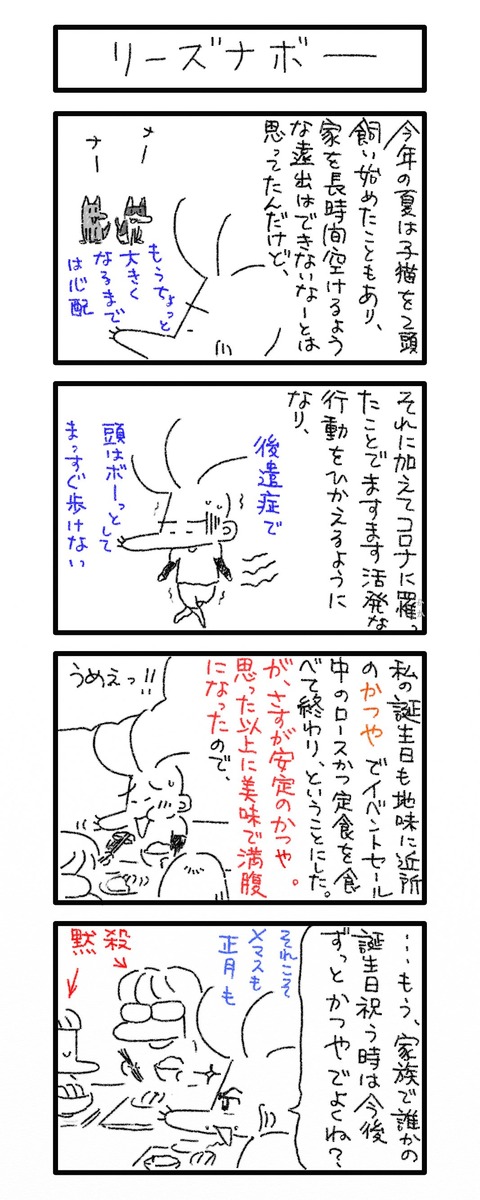 リーズナボー
今年の夏は子猫を2頭
飼い始めたこともあり、
家を長時間空けるよう
な遠出はできないなーとは
思ってたんだけど、
ナー
ナー
もうちょっと
大きく
なるまで
は心配
それに加えてコロナに罹っ
たことでますます活発な
行動をひかえるように
なり、
後遺症で
頭はボーっとして
まっすぐ歩けない
私の誕生日も地味に近所
のかつやでイベントセール
中のロースかつ定食を食
べて終わり、ということにした。
が、さすが安定のかつや。
思った以上に美味で満腹
になったので、
うめぇっ!!
…もう、家族で誰かの
誕生日祝う時は今後
ずっとかつやでよくね?
それこそ
Xマスも
正月も
殺
黙